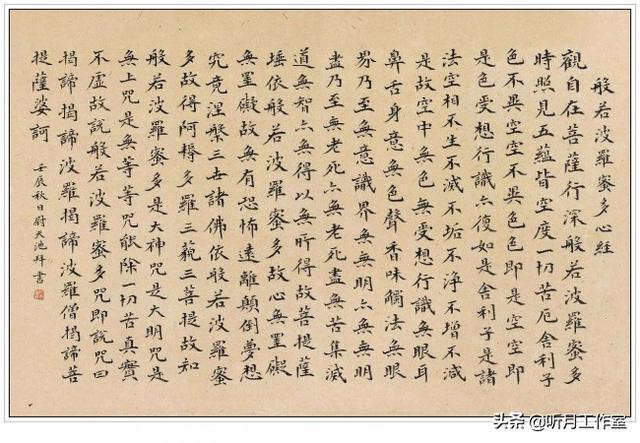 般若波羅蜜多心經
觀自在菩薩行深般若波羅蜜多
時照見五蘊皆空度一切苦厄舍利子
色不異空空不異色色即是空空即
是色受想行識亦復如是舍利子是諸
法空相不生不滅不垢不淨不增不減
是故空中無色無受想行識無眼耳
鼻舌身意無色聲香味觸法無眼
界乃至無意識界無無明亦無無明
盡乃至無老死亦無老死盡無苦集滅
道無智亦無得以無所得故菩提薩
埵依般若波羅蜜多故心無罣礙
無罣礙故無有恐怖遠離顛倒夢想
究竟涅槃三世諸佛依般若波羅蜜
多故得阿耨多羅三藐三菩提故知
般若波羅蜜多是大神咒是大明咒是
無上咒是無等等咒能除一切苦真實
不虛故說般若波羅蜜多咒即說咒曰
揭諦揭諦波羅揭諦波羅僧揭諦菩
提薩婆訶
壬辰秋日尉天池拜書
头条 @听月工作室